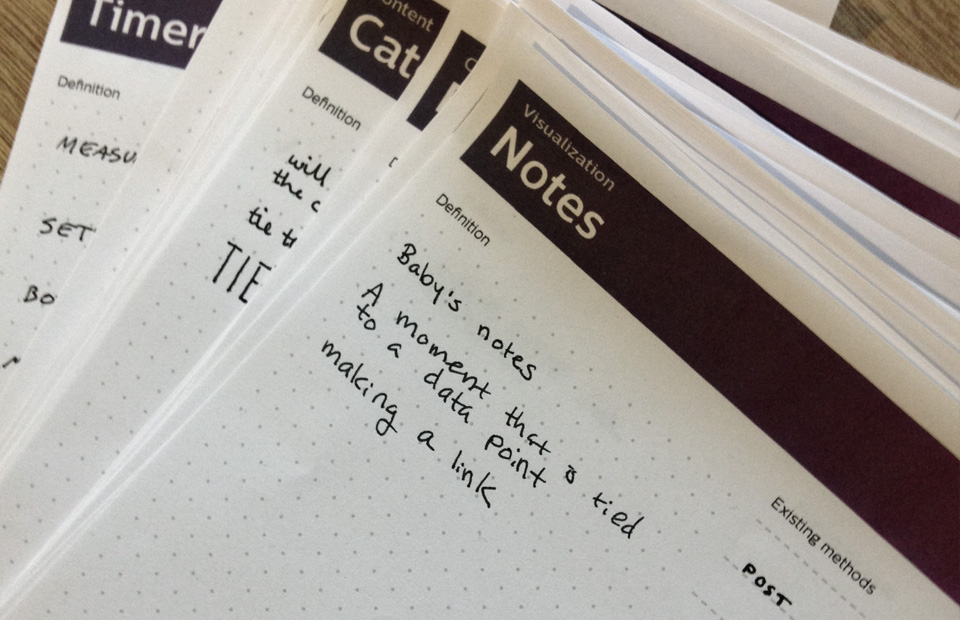 Timer
Definition
MEASU
SET
BO
ontent
Cat
Definition
will
the c
tie t
TIE
Visualization
Notes
Definition
Baby's notes
A moment that is tied
to a data point
making a link
Existing methods
POST